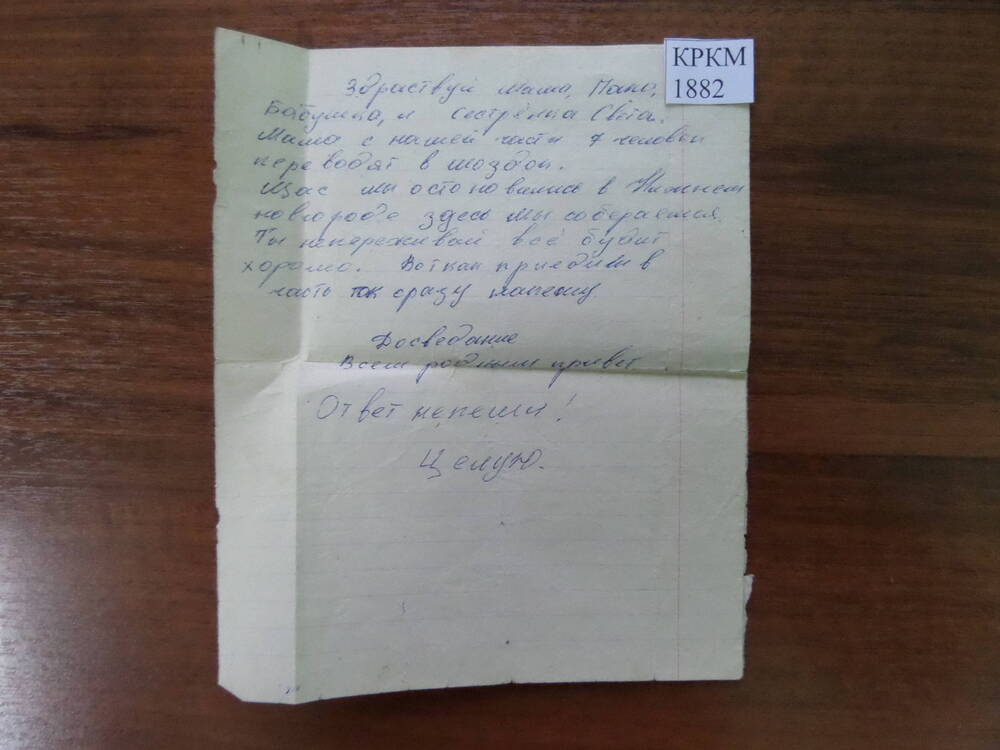 КРКМ
1882
Здраствуй Мама, Папа,
Бабушка, и Сестрёнка Света.
Мама с нашей части 7 человек
переводят в
Щас мы остоновились в Нижнем
новгороде здесь мы собераемся.
Ты непереживай всё будит
хорошо. Вот как приедим в
часть так сразу напешу.
Досведание
Всем родным привет
Ответ непеши!
Целую.